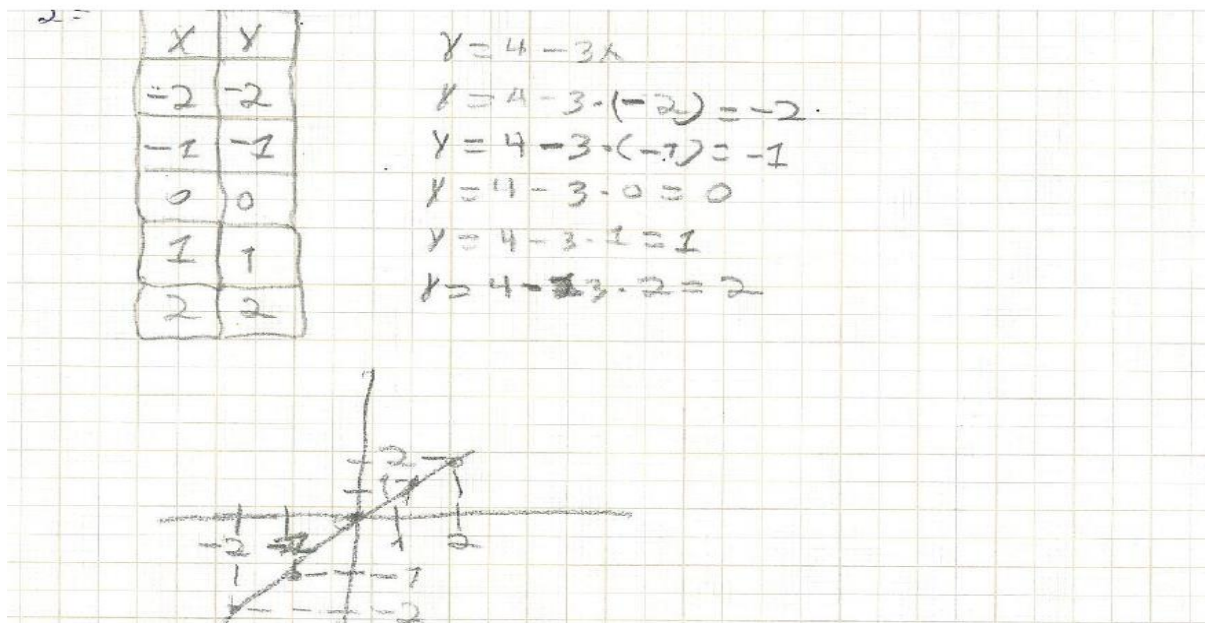 2=
X Y
-2 -2
-1 -1
0 0
1 1
2 2
y = 4 - 3x
y = 4 - 3 · (-2) = -2
y = 4 - 3 · (-1) = -1
y = 4 - 3 · 0 = 0
y = 4 - 3 · 1 = 1
y = 4 - 3 · 2 = 2
2
1
-2 1 2
-1
-2